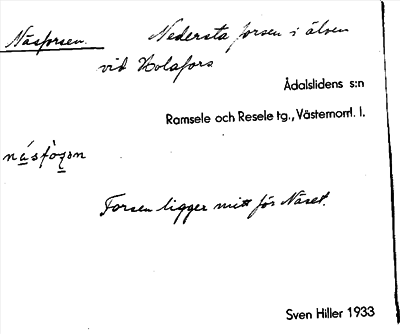 Näsforsen. Nedersta forsen i älven
vid Holafors
Ådalslidens s:n
Ramsele och Resele tg., Västernorrl. l.
Forsen ligger mitt för Näset.
Sven Hiller 1933